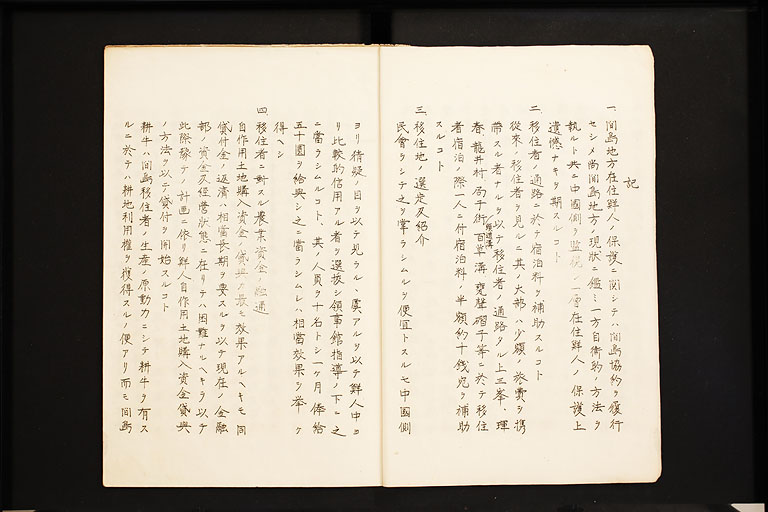 記
一、間島地方在住鮮人ノ保護ニ関シテハ間島協約ヲ履行
セシメ尚間島地方ノ現状ニ鑑ミ一方自衛的ノ方法ヲ
執ルト共ニ中國側ヲ監視ノ一層在住鮮人ノ保護上
遺憾ナキヲ期スルコト
二、移住者ノ通路ニ於テ宿泊料ヲ補助スルコト
從來ノ移住者ヲ見ルニ其ノ大部ハ少額ノ旅費ヲ携
帶スル者ナルヲ以テ移住者ノ通路タル上三峯、琿
春、龍井村、局子街、百草溝、甕聲磖子等ニ於テ移住
者宿泊ノ際一人ニ付宿泊料ノ半額約十錢宛ヲ補助
スルコト
三、移住地ノ選定及紹介
民會ヲシテ之ヲ掌ラシムルヲ便宜トスルモ中國側
ヨリ猜疑ノ目ヲ以テ見ラルヽ虞アルヲ以テ鮮人中ヨ
リ比較的信用アル者ヲ選抜シ領事館指導ノ下ニ之
ニ當ラシムルコト、其ノ人員ヲ十名トシ一ヶ月俸給
五十圓ヲ給與シ之ニ當ラシムレハ相當效果ヲ挙ケ
得ヘシ
四、移住者ニ對スル農業資金ノ融通
自作用土地購入資金ノ貸與ハ最モ效果アルヘキモ同
貸付金ノ返濟ハ相當長期ヲ要スルヲ以テ現在ノ金融
部ノ資金及経営状態ニ在リテハ困難ナルヘキヲ以テ
此際豫テノ計画ニ依リ鮮人自作用土地購入資金貸與
ノ方法ヲ以テ貸付ヲ開始スルコト
耕牛ハ間島移住者ノ生産ノ原動力ニシテ耕牛ヲ有ス
ルニ於テハ耕地利用權ヲ獲得スルノ便アリ而モ間島